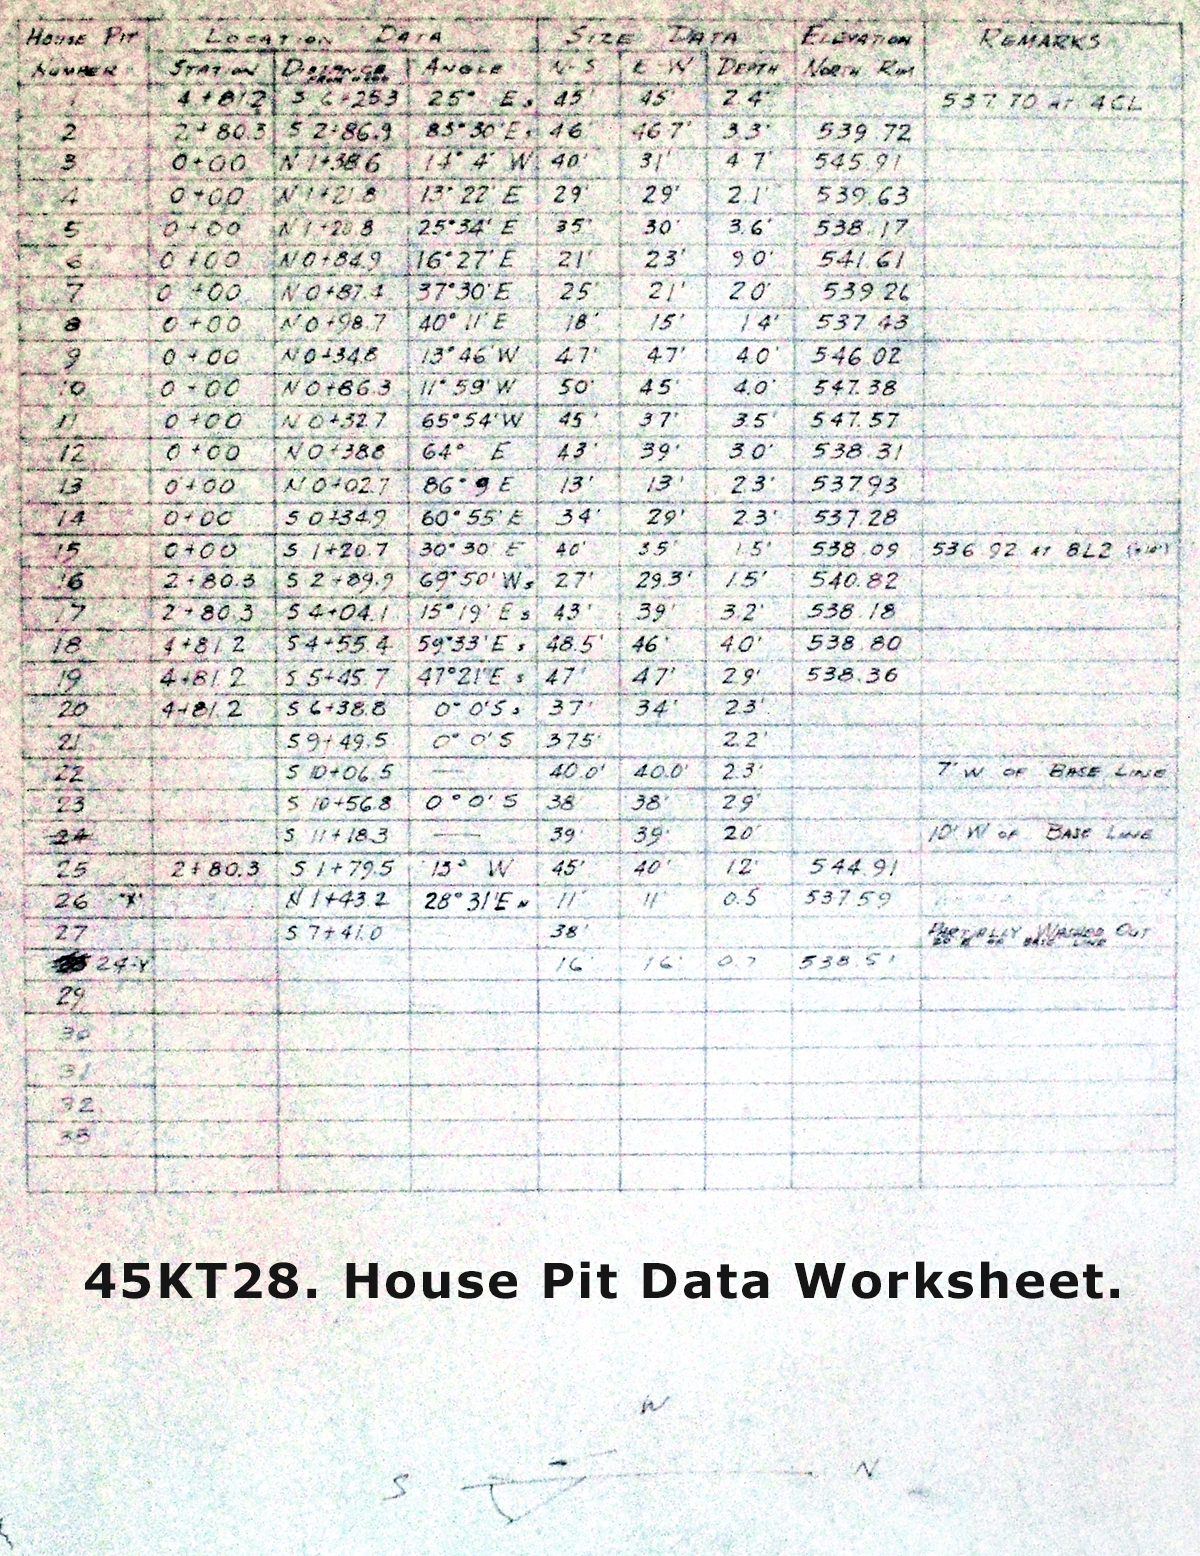 HOUSE PIT LOCATION DATA SIZE DATA ELEVATION REMARKS
NUMBER STATION DISTANCE ANGLE N-S E-W DEPTH NORTH RIM
1 4+81.2 S 6+25.3 25° E s 45' 45' 2.4' 537.70 AT 4CL
2 2+80.3 S 2+86.9 83°30'E s 46' 46.7' 3.3' 539.72
3 0+00 N 1+38.6 14° 4' W 40' 31' 4.7' 545.91
4 0+00 N 1+21.8 13°22' E 29' 29' 2.1' 539.63
5 0+00 N 1+20.8 25°34' E 35' 30' 3.6' 538.17
6 0+00 N 0+84.9 16°27'E 21' 23' 9.0' 541.61
7 0+00 N 0+87.4 37°30'E 25' 21' 2.0' 539.26
8 0+00 N 0+98.7 40°11'E 18' 15' 1.4' 537.43
9 0+00 N 0+34.8 13°46'W 47' 47' 4.0' 546.02
10 0+00 N 0+86.3 11°59'W 50' 45' 4.0' 547.38
11 0+00 N 0+32.7 65°54'W 45' 37' 3.5' 547.57
12 0+00 N 0+38.8 64° E 43' 39' 3.0' 538.31
13 0+00 N 0+02.7 86°9 E 13' 13' 2.3' 537.93
14 0+00 S 0+34.9 60°55'E 34' 29' 2.3' 537.28
15 0+00 S 1+20.7 30°30' E 40' 35' 1.5' 538.09 536.92 AT BL2
16 2+80.3 S 2+89.9 69°50'W s 27' 29.3' 1.5' 540.82
17 2+80.3 S 4+04.1 15°19'E s 43' 39' 3.2' 538.18
18 4+81.2 S 4+55.4 59°33'E s 48.5' 46' 4.0' 538.80
19 4+81.2 S 5+45.7 47°21'E s 47' 47' 2.9' 538.36
20 4+81.2 S 6+38.8 0° 0'S s 37' 34' 2.3'
21 S 9+49.5 0° 0'S 37.5' 2.2'
22 S 10+06.5 — 40.0' 40.0' 2.3' 7' W OF BASE LINE
23 S 10+56.8 0°0'S 38' 38' 2.9'
24 S 11+18.3 — 39' 39' 2.0' 10' W OF BASE LINE
25 2+80.3 S 1+79.5 13° W 45' 40' 12' 544.91
26 "X" N 1+43.2 28°31'E N 11' 11' 0.5 537.59
27 S 7+41.0 38' PARTIALLY WASHED OUT
24-Y 16' 16' 0.7 538.51
29
30
31
32
33
45KT28. House Pit Data Worksheet.
W
S N